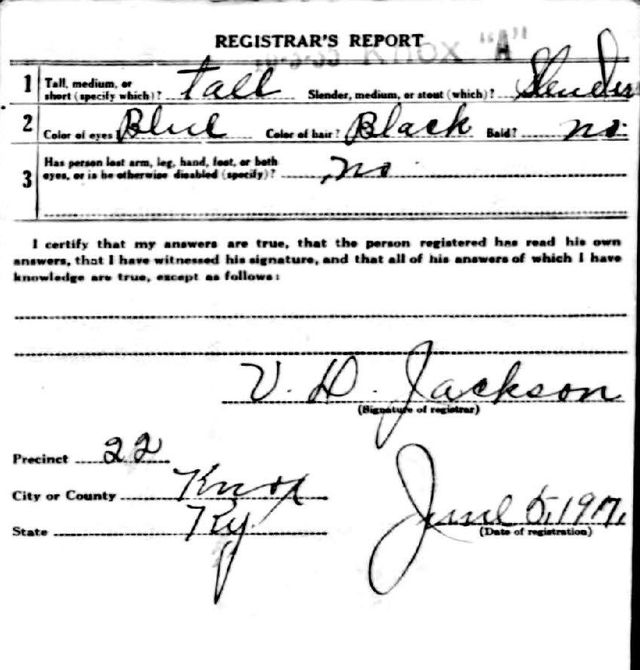 REGISTRAR'S REPORT
Knox "A"
1 Tall, medium, or short (specify which)? tall Slender, medium, or stout (which)? Slender
2 Color of eyes Blue Color of hair? Black Bald? no
3 Has person lost arm, leg, hand, foot, or both
eyes, or is he otherwise disabled (specify)? no
I certify that my answers are true, that the person registered has read his own
answers, that I have witnessed his signature, and that all of his answers of which I have
knowledge are true, except as follows:
V. D. Jackson
(Signature of registrar)
Precinct 22
City or County Knox
State Ky.
June 5, 1917.
(Date of registration)